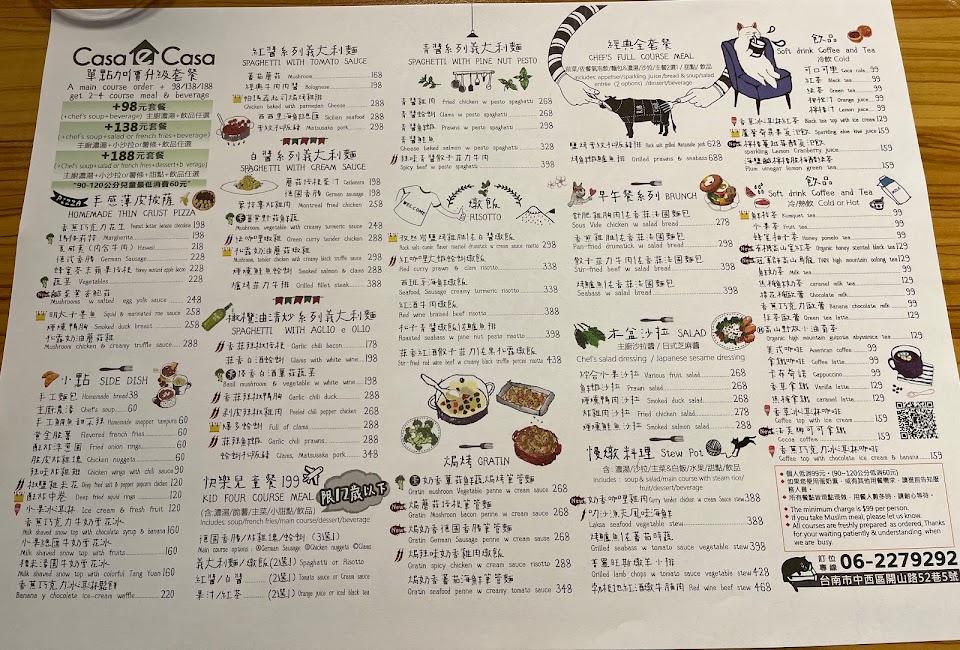 Casa e Casa
單點加價升級套餐
A main course order + 98/138/188
get 2-4 course meal & beverage
+98元套餐
(+chef's soup+beverage) 主廚濃湯+飲品任選
+138元套餐
(+Chef's soup+salad or french fries+beverage)
主廚濃湯+小沙拉or薯條+飲品任選
+188元套餐
(+Chef's soup+salad or french fries+dessert+beverage)
主廚濃湯+小沙拉or薯條+甜點+飲品任選
"90-120公分兒童最低消費60元"
PIZZA 手感薄皮披薩
HOMEMADE THIN CRUST PIZZA
香蕉巧克力花生
瑪格莉特 Margherita 198
夏威夷(內含牛肉) Hawaii 218
德式香腸 German Sausage 228
Honey mustard apple bacon
蔬菜 Vegetables 228
Mushrooms w salted egg yolk sauce 248
明太子墨魚 Squid & marinated roe sauce
煙燻鴨胸 Smoked duck breast 258
松露奶油蘑菇雞
Mushroom chicken & creamy truffle sauce 288
小點 SIDE DISH
手工麵包 Homemade bread 38
主廚濃湯 Chef's soup 60
Homemade snapper tempura 60
黃金脆薯 Flavored french fries 60
酥炸洋蔥圈 Fried onion rings 60
脆皮炸雞塊 Chicken nuggets 60
辣味炸雞翅 Chicken wings with chili sauce 90
椒鹽雞米花 Deep fried salt & pepper chicken 110
酥炸中卷 Deep fried squid rings 120
小果冰淇淋 Ice cream & fresh fruit 120
香蕉巧克力牛奶雪花冰
Milk shaved snow top with chocolate syrup & banana 160
小果繽園牛奶雪花冰
Milk shaved snow top with fruits 160
糖果湯圓牛奶雪花冰
Milk shaved snow top with colorful Tang Yuan 160
香蕉巧克力冰淇淋鬆餅
Banana y chocolate ice-cream waffle 220
紅醬系列義大利麵
SPAGHETTI WITH TOMATO SAUCE
蕃茄蘑菇 Mushroom 168
經典牛肉肉醬 Bolognese 198
帕瑪森起司焗烤雞排
Chicken baked with parmesan Cheese 288
西西里海鮮總匯 Sicilian seafood 288
香煎松阪豬 Matsusaka pork 298
白醬系列義大利麵
SPAGHETTI WITH CREAM SAUCE
蘑菇培根蛋汁 Carbonara 198
德國香腸 German Sausage 198
蒙特婁炸雞肉 Montreal fried chicken 258
Mushroom, vegetables with creamy truffle sauce 248
綠咖哩嫩雞 Green curry tander chicken 288
松露奶油蘑菇嫩雞
Mushroom, tender chicken with creamy truffle sauce 298
煙燻鮭魚蛤蜊 Smoked salmon & clams 288
爐烤菲力牛排 Grilled fillet steak 388
橄欖油清炒系列義大利麵
SPAGHETTI WITH AGLIO e OLIO
蒜香培根 Garlic chili bacon 178
蒜香白酒蛤蜊 Clams with white wine 198
塔香白酒蕈菇蔬菜
Basil mushroom & vegetables w white wine 198
香蒜辣味鴨 Garlic chili duck 288
剝皮辣椒雞肉 Peeled chili pepper chicken 268
爆多蛤蜊 Full of clams 288
蒜辣鮮蝦 Garlic chili prawns 298
蛤蜊松阪豬 Clams, Matsusaka pork 348
快樂兒童餐199
KID FOUR COURSE MEAL
限12歲以下
(含:濃湯/脆薯/主菜/小甜點/飲品)
includes: soup/french fries/main course/dessert/beverage
德國香腸/炸雞塊/蛤蜊 (3選1)
Main course options : ◎German Sausage ◎Chicken nuggets ◎Clams
義大利麵/燉飯(2選1) Spaghetti or Risotto
紅醬/白醬 (2選1) Tomato sauce or Cream sauce
果汁/紅茶 (2選1) Orange juice or iced black tea
青醬系列義大利麵
SPAGHETTI WITH PINE NUT PESTO
青醬雞肉 Fried chicken w pesto spaghetti 268
青醬蛤蜊 Clams w pesto spaghetti 268
青醬鮮蝦 Prawns w pesto spaghetti 298
青醬鮭魚
Cheese baked salmon w pesto spaghetti 328
辣味青醬骰子菲力牛肉
Spicy beef w pesto spaghetti 398
WELCOME
燉飯
RISOTTO
Rock salt cumin flavor roasted drumstick w cream sauce risotto 298
紅咖哩大蝦蛤蜊燉飯
Red curry prawn & clam risotto 338
西班牙海鮮燉飯
Seafood, Sausage creamy turmeric risotto 338
紅酒牛肉燉飯
Red wine braised beef risotto 398
松子青醬燉飯佐鱸魚排
Roasted seabass w pine nut pesto risotto 398
蒜香紅酒骰子菲力佐黑松露燉飯
Stir-fried red wine beef w creamy black truffle porcini risotto 438
焗烤 GRATIN
奶香蕈菇鮮蔬焗烤筆管麵
Gratin mushroom Vegetable penne w cream sauce 268
焗蘑菇培根筆管麵
Gratin Mushroom bacon penne w cream sauce 268
焗奶香德國香腸筆管麵
Gratin German Sausage penne w cream sauce 298
焗辣味奶香雞肉燉飯
Gratin Spicy chicken w cream sauce risotto 298
焗奶香蕃茄海鮮筆管麵
Gratin seafood penne w creamy tomato sauce 348
經典全套餐
CHEF'S FULL COURSE MEAL
前菜/佐餐氣泡飲/麵包&濃湯/沙拉/主餐(2選1)/甜點/飲品
includes: appetiser/sparkling juice/bread & soup/salad
entrée (2 options) /dessert/beverage
Rock salt grilled Matsusaka pork 628
Grilled prawns & seabass 688
早午餐系列 BRUNCH
舒肥雞胸肉佐香蒜法國麵包
Sous Vide chicken w salad bread 288
香煎雞腿肉佐香蒜法國麵包
Pan-fried drumstick w salad bread 298
骰子菲力牛肉佐香蒜法國麵包
Stir-fried beef w salad bread 398
烤鱸魚佐香蒜法國麵包
Seabass w salad bread 398
木盆沙拉 SALAD
主廚沙拉醬 / 日式芝麻醬
Chef's salad dressing / Japanese sesame dressing
綜合水果沙拉 Various fruit salad 268
鮮蝦沙拉 Prawn salad 268
煙燻鴨胸沙拉 Smoked duck salad 268
炸雞肉沙拉 Fried chicken salad 278
煙燻鮭魚沙拉 Smoked salmon salad 288
慢燉料理 Stew Pot
含: 濃湯/沙拉/主菜&白飯/水果/甜點/飲品
Includes : soup/salad/main course & steam rice/
fruit/dessert/beverage
奶香咖哩雞丁 Curry chicken stew w vegetable 388
叻沙漁夫風味海鮮
Laksa seafood vegetable stew 388
烤鱸魚佐蕃茄時蔬
Grilled seabass w tomato sauce vegetable stew 398
羊小排
Grilled lamb chops w tomato sauce vegetable stew 428
紅酒燉牛腩肉 Red wine beef stew 468
飲品
Soft drink Coffee and Tea
冷飲 Cold
可口可樂 Coca cola 99
紅茶 Black tea 99
綠茶 Green tea 99
柳橙汁 Orange juice 99
檸檬汁 Lemon juice 99
香草冰淇淋紅茶 Black tea top with ice cream 119
蘆薈奇異果氣泡飲 Sparkling aloe kiwi juice 159
sparkling Lemon Cranberry juice 159
Plum vinegar lemon green tea 159
飲品
Soft drink Coffee and Tea
冷/熱飲 Cold or Hot
金桔茶 Kumquat tea 99
水果茶 Fruit tea 99
蜂蜜柚子茶 Honey pomelo tea 99
Organic honey scented black tea 129
TWN high mountain oolong tea 129
鮮奶茶 Milk tea 119
黑糖鮮奶茶 Caramel milk tea
棉花糖可可 Chocolate milk
香蕉巧克力 Banana chocolate milk
抹茶歐蕾 Green tea latte
Organic high mountain gutzania abyssinica tea 129
美式咖啡 American coffee 99
拿鐵咖啡 Coffee latte 99
卡布奇諾 Cappuccino 99
香草拿鐵 Vanilla latte 129
焦糖拿鐵 caramel latte 129
香草冰淇淋咖啡
Coffee top with ice cream 159
法芙娜可可拿鐵
Cocoa coffee 159
香蕉巧克力冰淇淋咖啡
Coffee top with chocolate ice cream & banana 159
個人低消99元,(90~120公分低消60元)
如果您使用蛋奶素,或有其他用餐需求,請提前告知服務人員。
所有餐點皆現點現做,用餐人數多時,請耐心等待。
The minimum charge is $99 per person.
If you take Muslim meal, please let us know.
All courses are freshly prepared as ordered, Thanks
for your waiting patiently & understanding when
we are busy.
訂位專線 06-2279292
台南市中西區開山路52巷5號